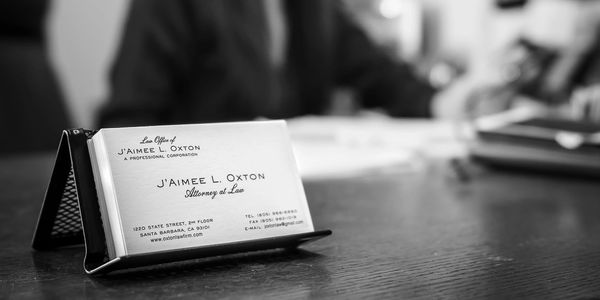 Law Office of
J'AIMEE L. OXTON
A PROFESSIONAL CORPORATION
J'AIMEE L. OXTON
Attorney at Law
1220 STATE STREET, 2ND FLOOR
SANTA BARBARA, CA 93101
www.oxtonlawfirm.com
TEL (805)
FAX (805)
E-MAIL